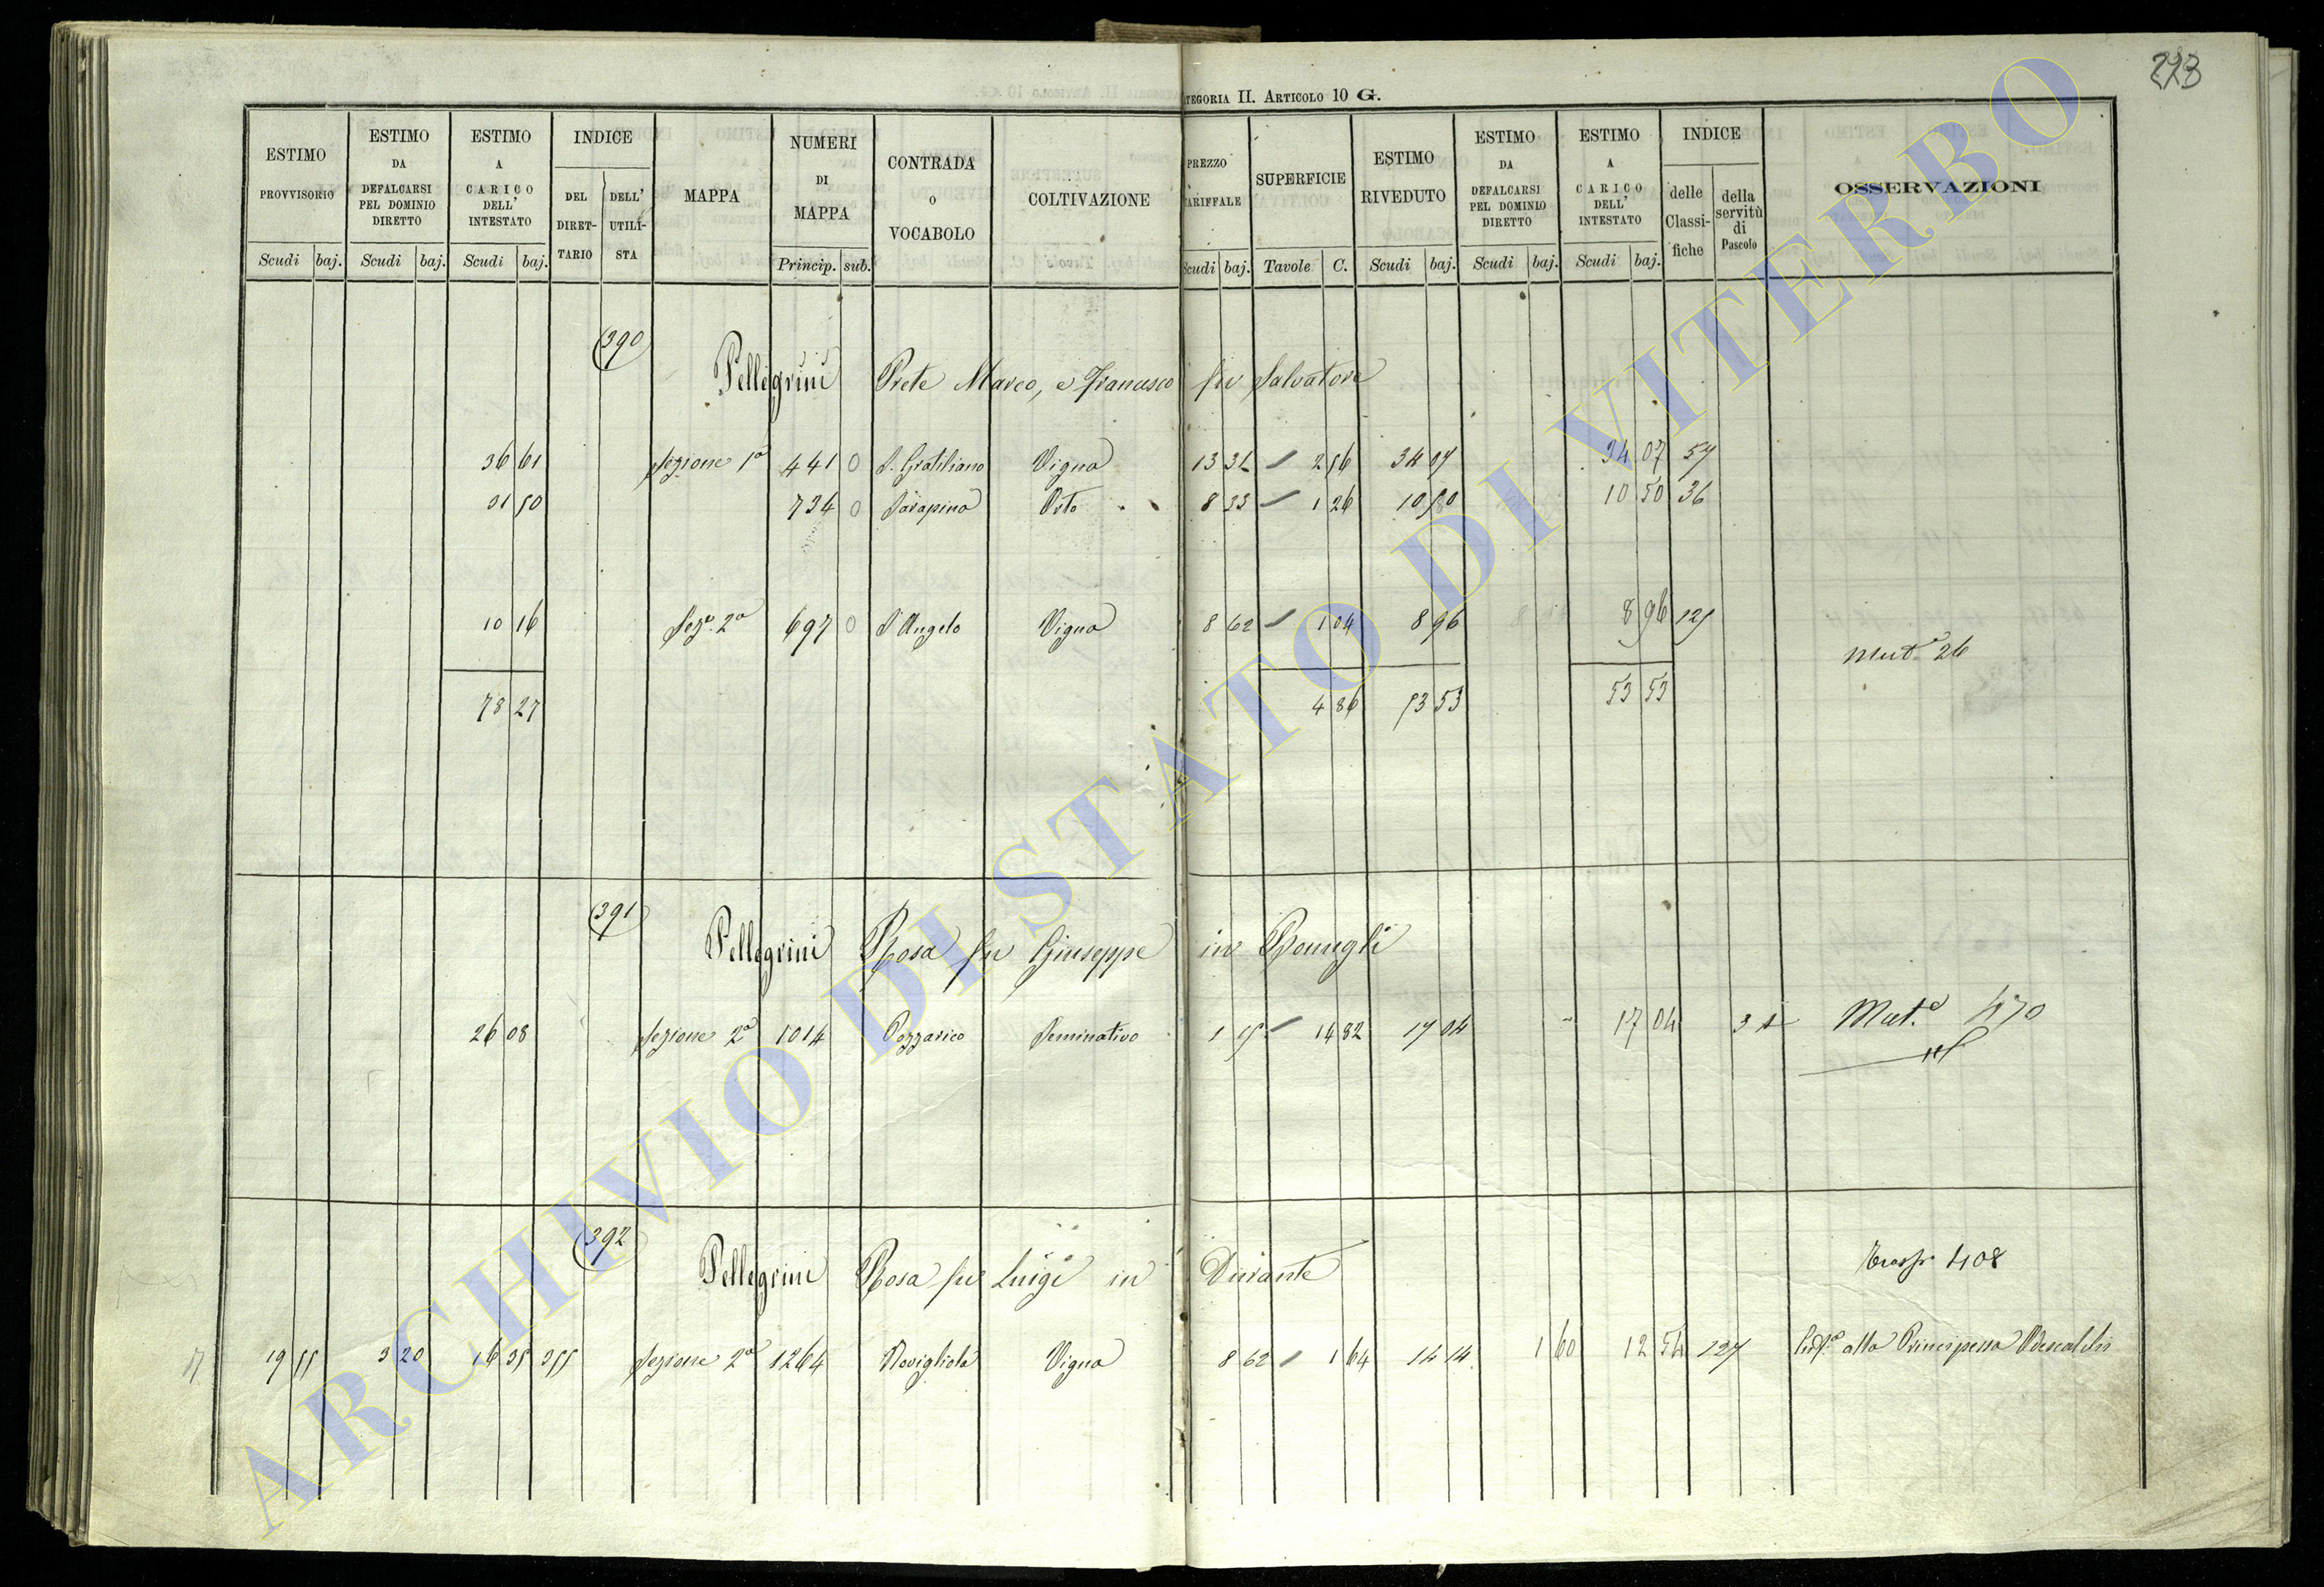 223
CATEGORIA II. ARTICOLO 10 G.
ESTIMO PROVVISORIO Scudi baj. ESTIMO DA DEFALCARSI PEL DOMINIO DIRETTO Scudi baj. ESTIMO A CARICO DELL' INTESTATO Scudi baj. INDICE DEL DIRET-TARIO DELL' UTILI-STA MAPPA NUMERI DI MAPPA Princip. sub. CONTRADA O VOCABOLO COLTIVAZIONE PREZZO TARIFFALE Scudi baj. SUPERFICIE Tavole C. ESTIMO RIVEDUTO Scudi baj. ESTIMO DA DEFALCARSI PEL DOMINIO DIRETTO Scudi baj. ESTIMO A CARICO DELL' INTESTATO Scudi baj. INDICE delle Classi-fiche della servitù di Pascolo OSSERVAZIONI
390
Pellegrini Prete Marco, e Francesco fu Salvatore
36 61 Sezione 1a 441 0 S. Gratiliano Vigna 13 31 2 56 34 07 34 07 57
31 50 734 0 Sarapina Orto 8 33 1 26 10 50 10 50 36
10 16 Seze 2a 697 0 S. Angelo Vigna 8 62 1 04 8 96 8 96 125
Muta 26
78 27 4 86 53 53 53 53
391
Pellegrini Rosa fu Giuseppe in
26 08 Sezione 2a 1014 Pozzarico Seminativo 1 15 14 82 17 04 17 04 Muta 470
392
Pellegrini Rosa fu Luigi in Durante
Trasfo 408
19 55 3 20 16 35 355 Sezione 2a 1264 Rovigliola Vigna 8 62 1 64 14 14 1 60 12 54 127 alla Principessa Odescalchi
ARCHIVIO DI STATO DI VITERBO